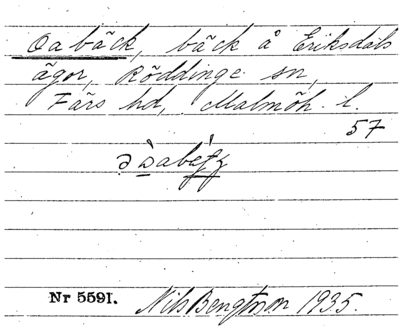 Oabäck, bäck å Eriksdals
ägor, Röddinge sn,
Färs hd, Malmöh. l.
57
Nr 5591. Nils Bengtsson 1935.